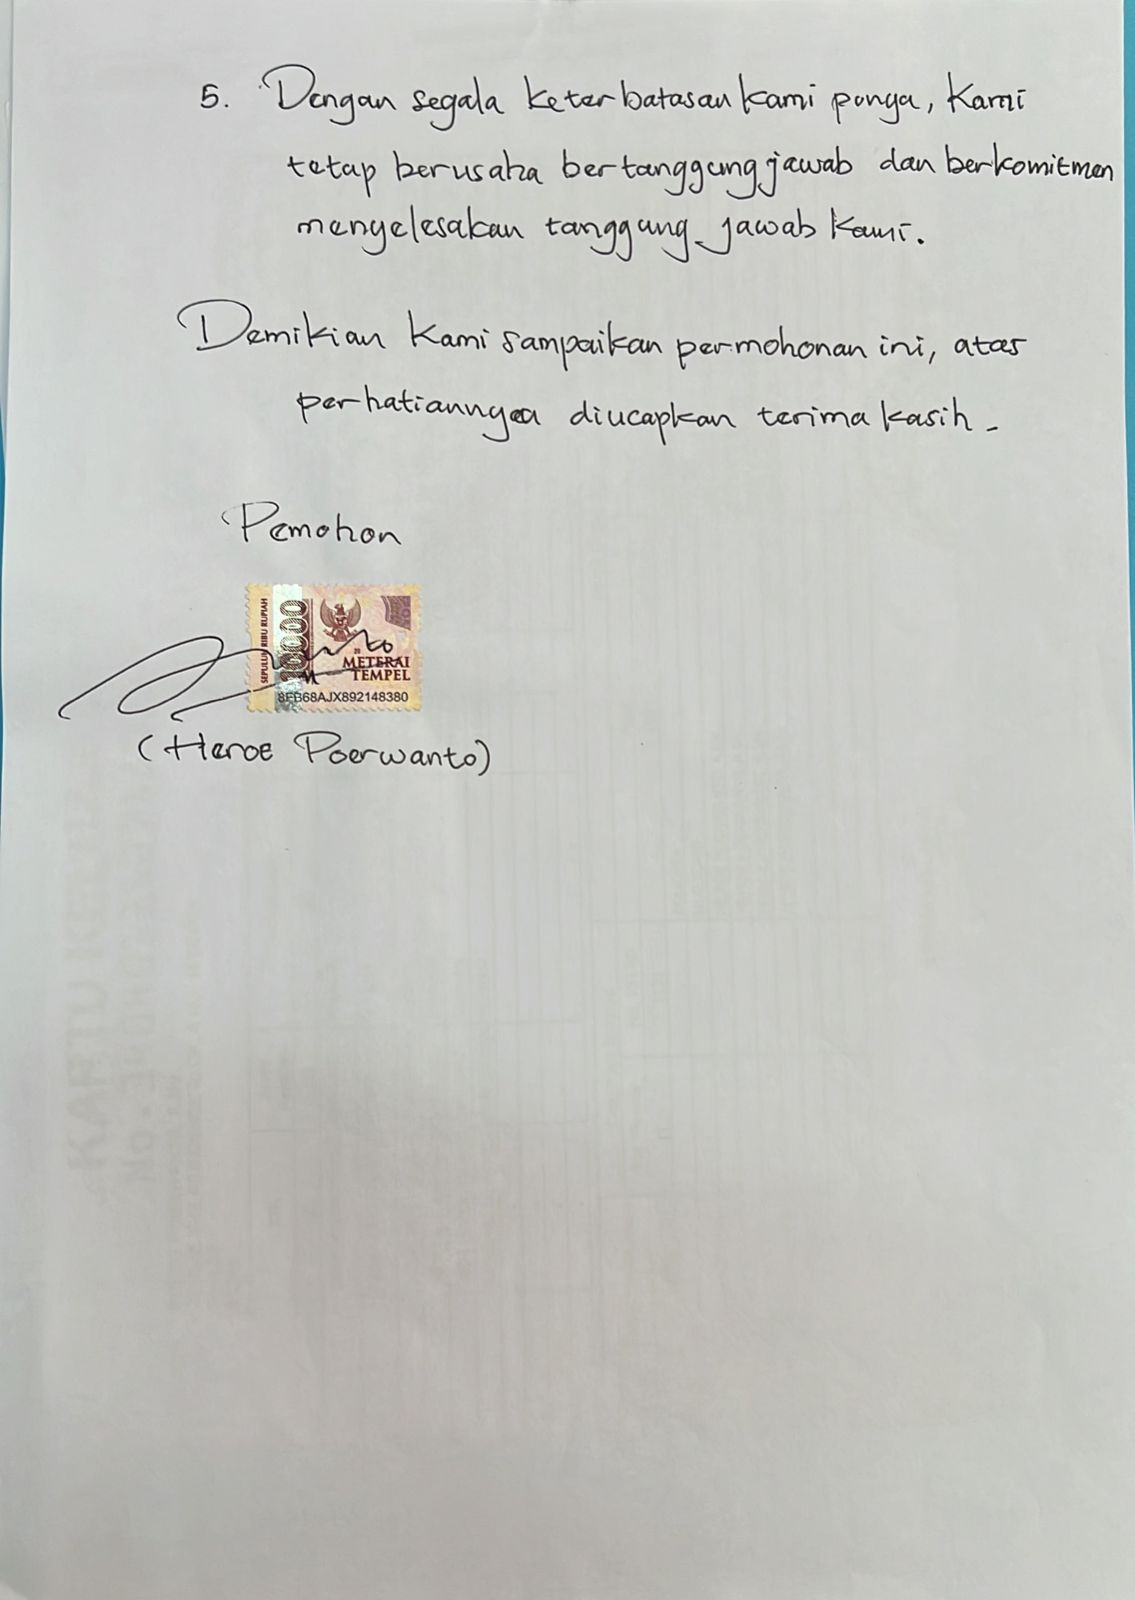 5. Dengan segala keterbatasan kami punya, Kami
tetap berusaha bertanggung jawab dan berkomitmen
menyelesakan tanggung jawab Kami.
Demikian Kami sampaikan permohonan ini, atas
perhatiannya diucapkan terima kasih -
Pemohon
SEPULUH RIBU RUPIAH
10000
METERAI
TEMPEL
8FB68AJX892148380
(Heroe Poerwanto)